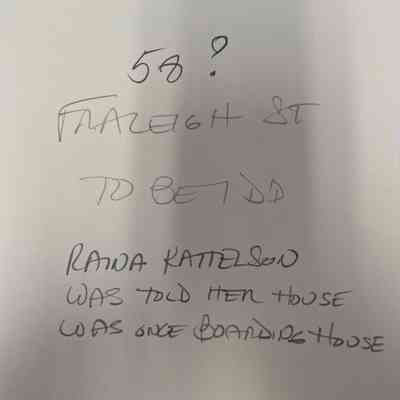 58 ?
FRALEIGH ST
TO BE
RAINA KATTELSON
WAS TOLD HER HOUSE
WAS ONCE BOARDING HOUSE